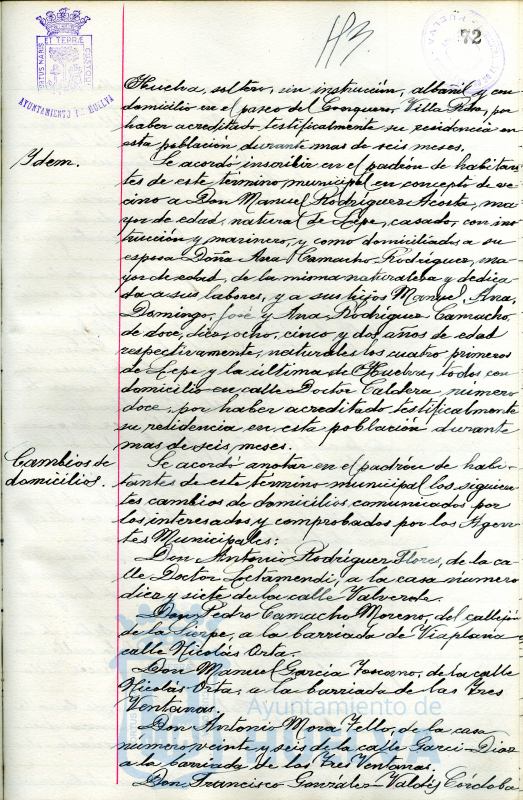 72
AYUNTAMIENTO DE HUELVA
Huelva, soltero, sin instrucción, albañil y con
domicilio en el paseo del Conquero, Villa Rosa, por
haber acreditado testificalmente su residencia en
esta población durante mas de seis meses.
Ydem.
Se acordó inscribir en el padrón de habitan-
tes de este término municipal en concepto de ve-
cino a Don Manuel Rodríguez Acosta, ma-
yor de edad, natural de Lepe, casado, con ins-
trucción y marinero, y como domiciliados a su
esposa Doña Ana Camacho Rodríguez, ma-
yor de edad, de la misma naturaleza y dedica-
da a sus labores, y a sus hijos Manuel, Ana,
Domingo, José y Ana Rodríguez Camacho,
de doce, diez, ocho, cinco y dos años de edad
respectivamente, naturales los cuatro primeros
de Lepe y la última de Huelva, todos con
domicilio en calle Doctor Caldera, número
doce, por haber acreditado testificalmente
su residencia en esta población durante
mas de seis meses.
Cambios de
domicilios.
Se acordó anotar en el padrón de habi-
tantes de este término municipal los siguien-
tes cambios de domicilios comunicados por
los interesados y comprobados por los Agen-
tes Municipales:
Don Antonio Rodríguez Flores, de la ca-
lle Doctor Letamendi, a la casa número
diez y siete de la calle Valverde.
Don Pedro Camacho Moreno, del callejón
de la Sierpe, a la barriada de Viaplana
calle Nicolás Orta.
Don Manuel García Toscano, de la calle
Nicolás Orta, a la barriada de las Tres
Ventanas.
Don Antonio Mora Tello, de la casa
número veinte y seis de la calle Garci-Díaz
a la barriada de las Tres Ventanas.
Don Francisco González-Valdés Córdoba
Ayuntamiento de
HUELVA